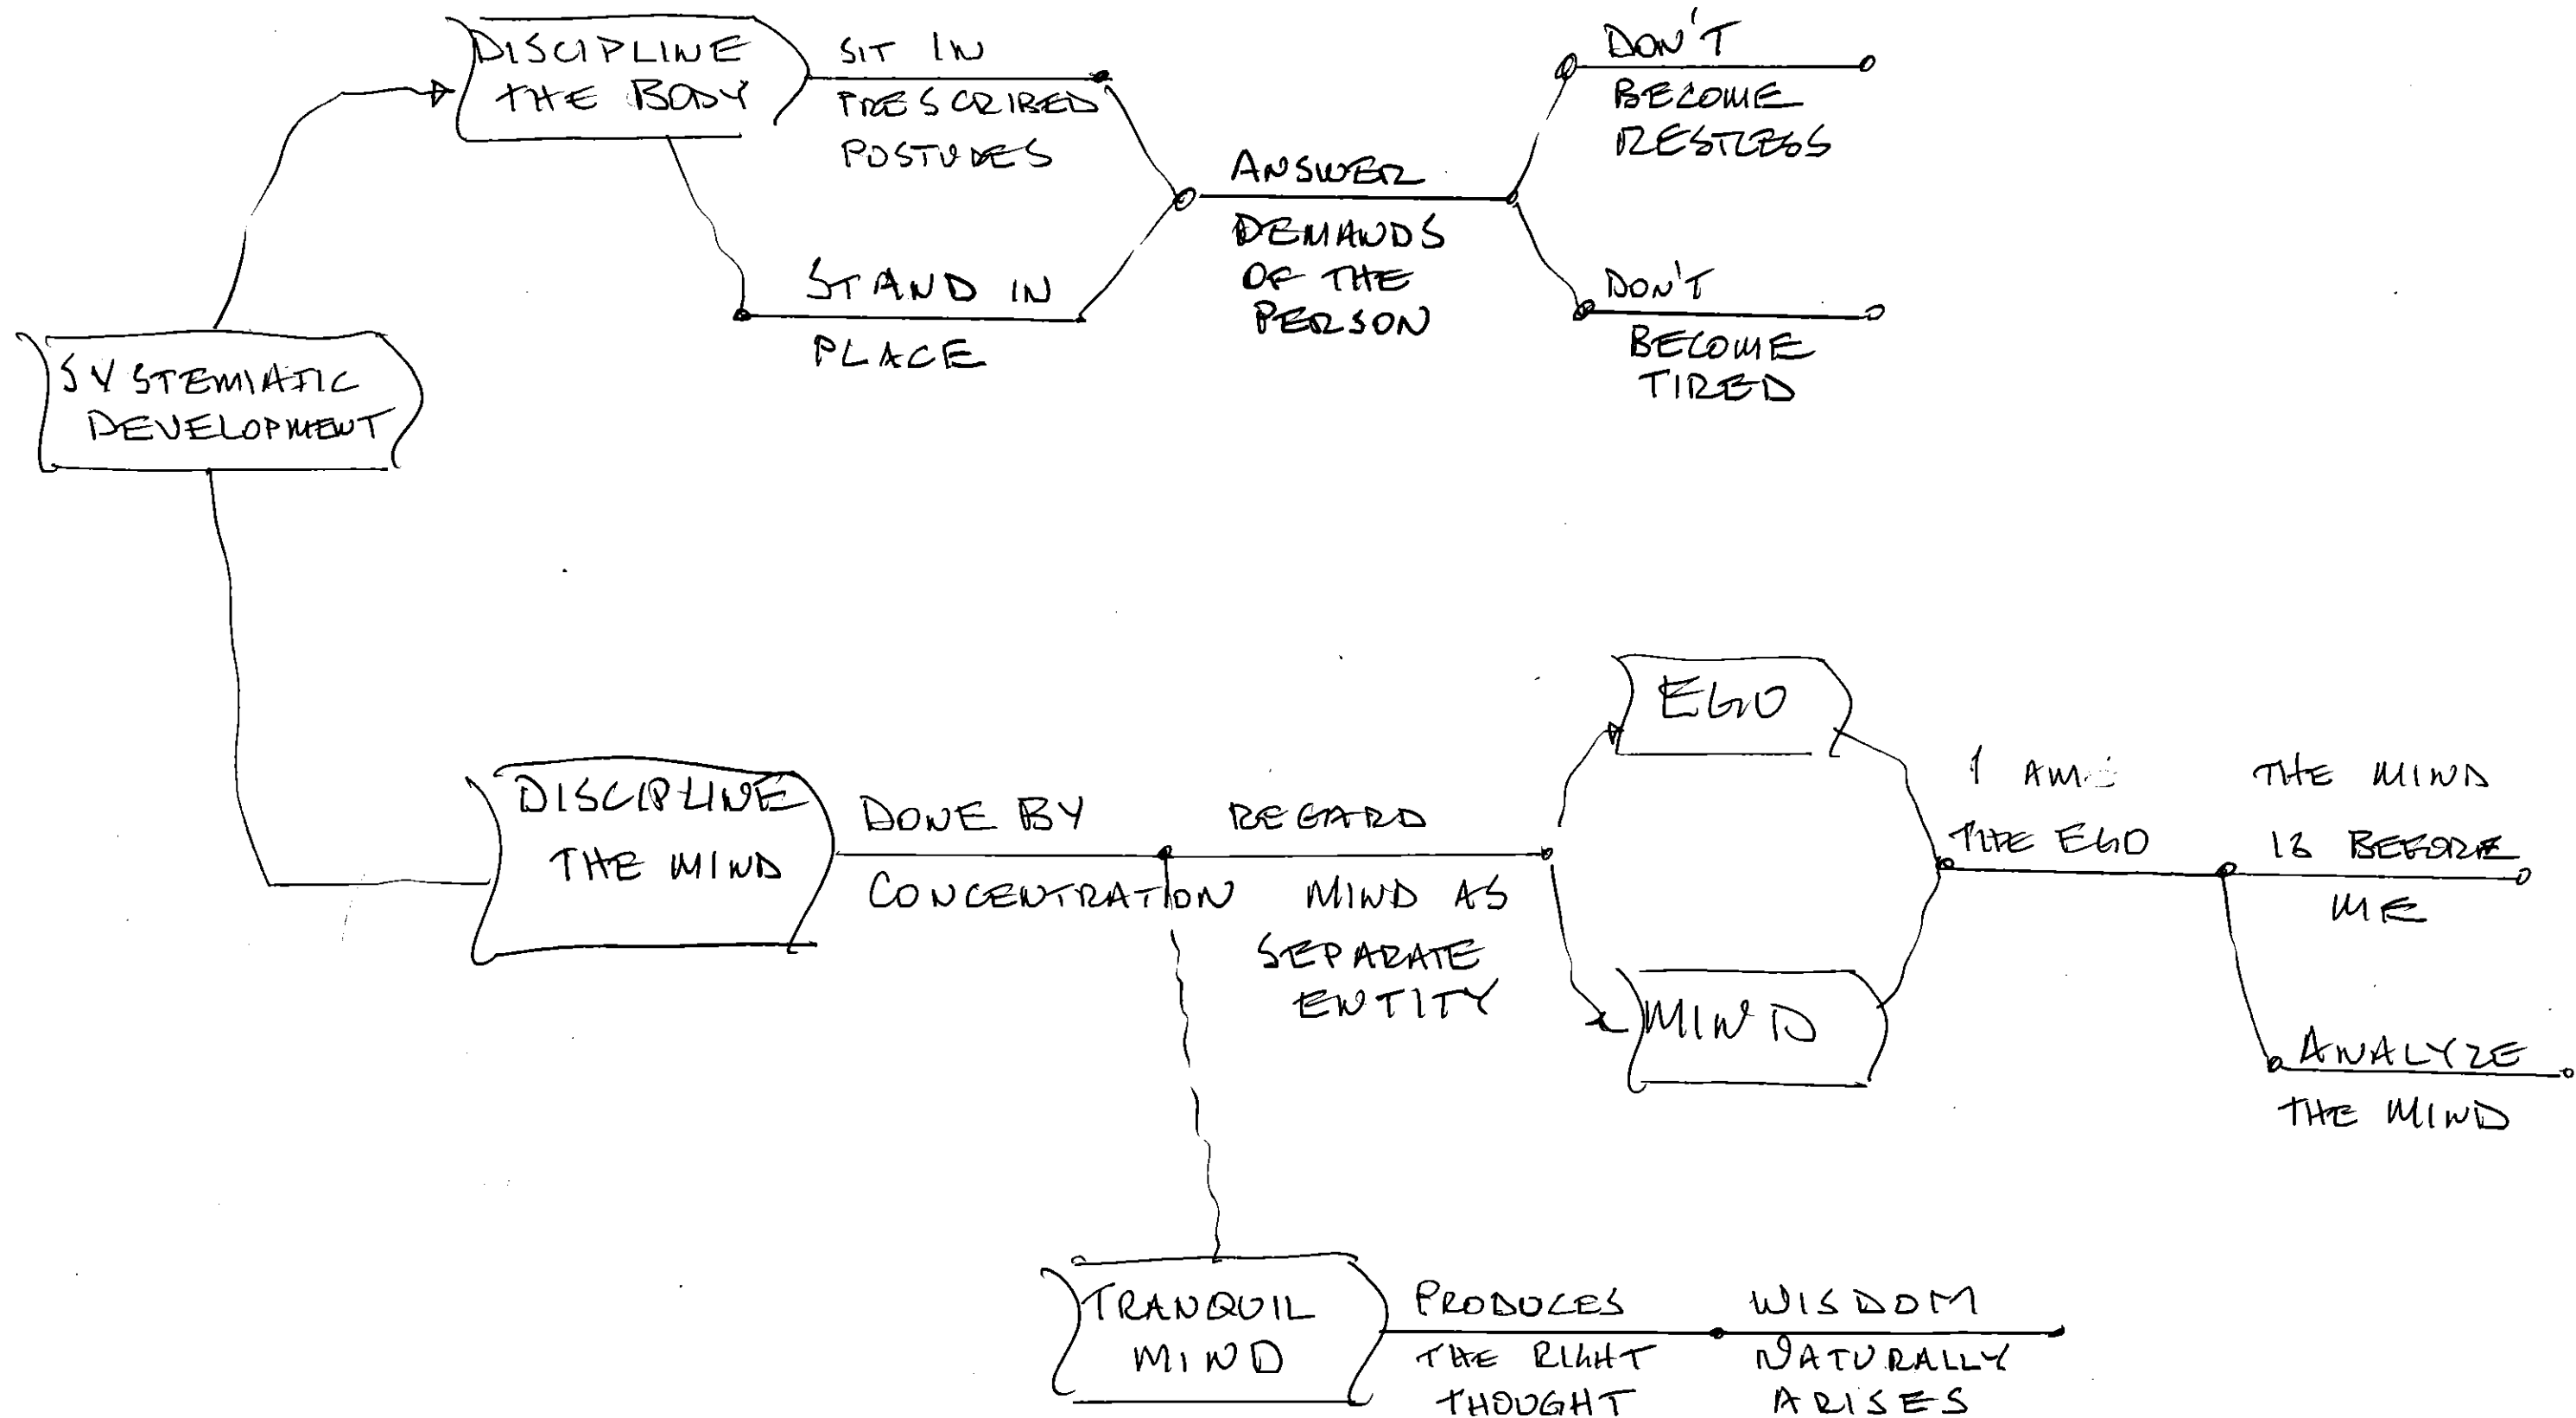 DISCIPLINE
THE BODY
SIT IN
PRESCRIBED
POSTURES
STAND IN
PLACE
ANSWER
DEMANDS
OF THE
PERSON
DON'T
BECOME
RESTLESS
DON'T
BECOME
TIRED
SYSTEMIATIC
DEVELOPMENT
DISCIPLINE
THE MIND
DONE BY
CONCENTRATION
REGARD
MIND AS
SEPARATE
ENTITY
EGO
MIND
I AM
THE EGO
THE MIND
IS BEFORE
ME
ANALYZE
THE MIND
TRANQUIL
MIND
PRODUCES
THE RIGHT
THOUGHT
WISDOM
NATURALLY
ARISES